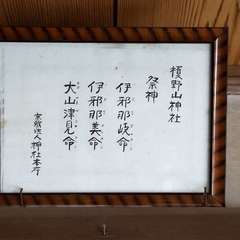 槇野山神社
祭神
伊邪那岐命
伊邪那美命
大山津見命
宗教法人神社本庁